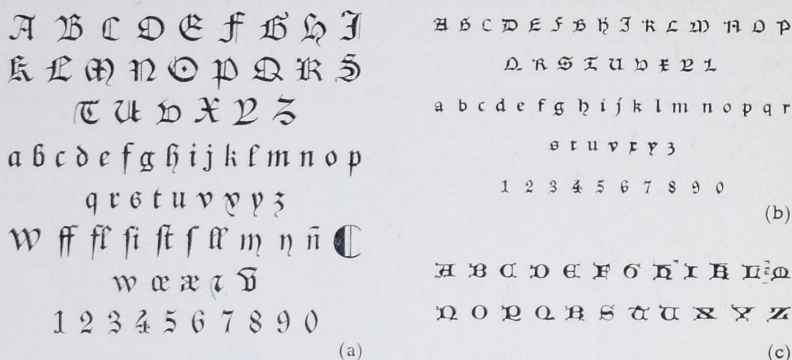 A B C D E F G H I
K L M N O P Q R S
T U V X Y Z
a b c d e f g h i j k l m n o p
q r s t u v x y z
W ff fl ſi ſt ſ ſſ m n ñ
w œ æ
1 2 3 4 5 6 7 8 9 0
(a)
A B C D E F G H I K L M N O P
Q R S T U V X Y Z
a b c d e f g h i j k l m n o p q r
s t u v x y z
1 2 3 4 5 6 7 8 9 0
(b)
A B C D E F G H I K L M
N O P Q R S T U X Y Z
(c)